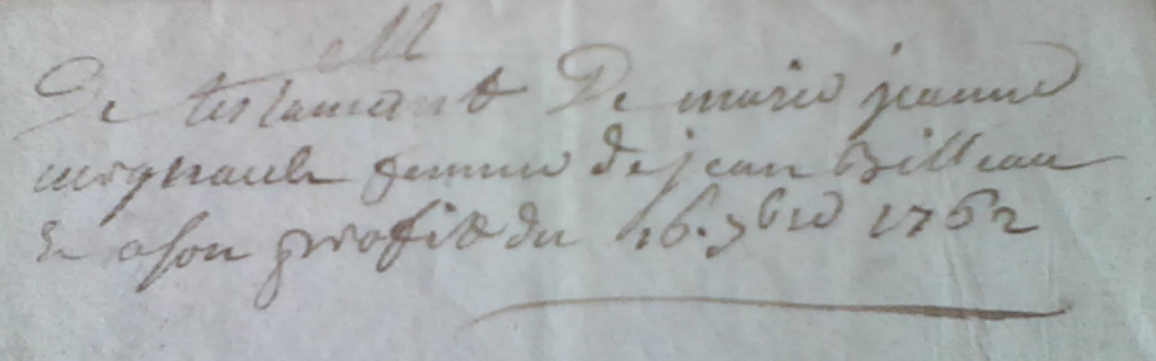 De testament De marie jeanne
mignault femme de jean Billeau
En a son profit du 16. 7bre 1762